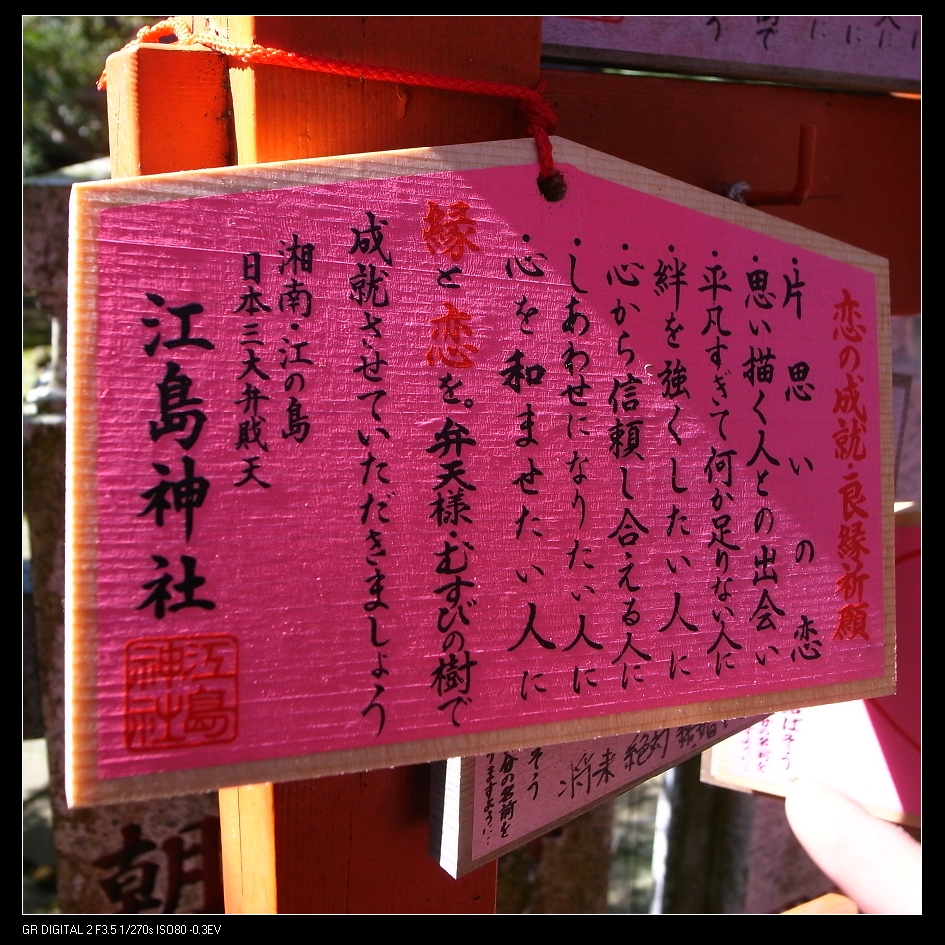 恋の成就・良縁祈願
・片思いの恋
・思い描く人との出会い
・平凡すぎて何か足りない人に
・絆を強くしたい人に
・心から信頼し合える人に
・しあわせになりたい人に
・心を和ませたい人に
縁と恋を。弁天様・むすびの樹で
成就させていただきましょう
湘南・江の島
日本三大弁戝天
江島神社
江島神社
将来
絶対
の名前を
りますように…
朝
GR DIGITAL 2 F3.5 1/270s ISO80 -0.3EV